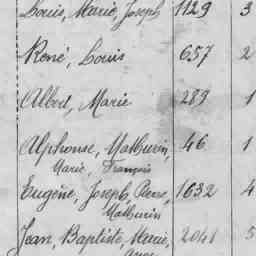 Louis, Marie, Joseph 1129 3
René, Louis 657 2
Albert, Marie 289 1
Alphonse, Mathurin, 46 1
Marie, François
Eugène, Joseph, Pierre, 1632 4
Mathurin
Jean, Baptiste, Marie, 2041 5